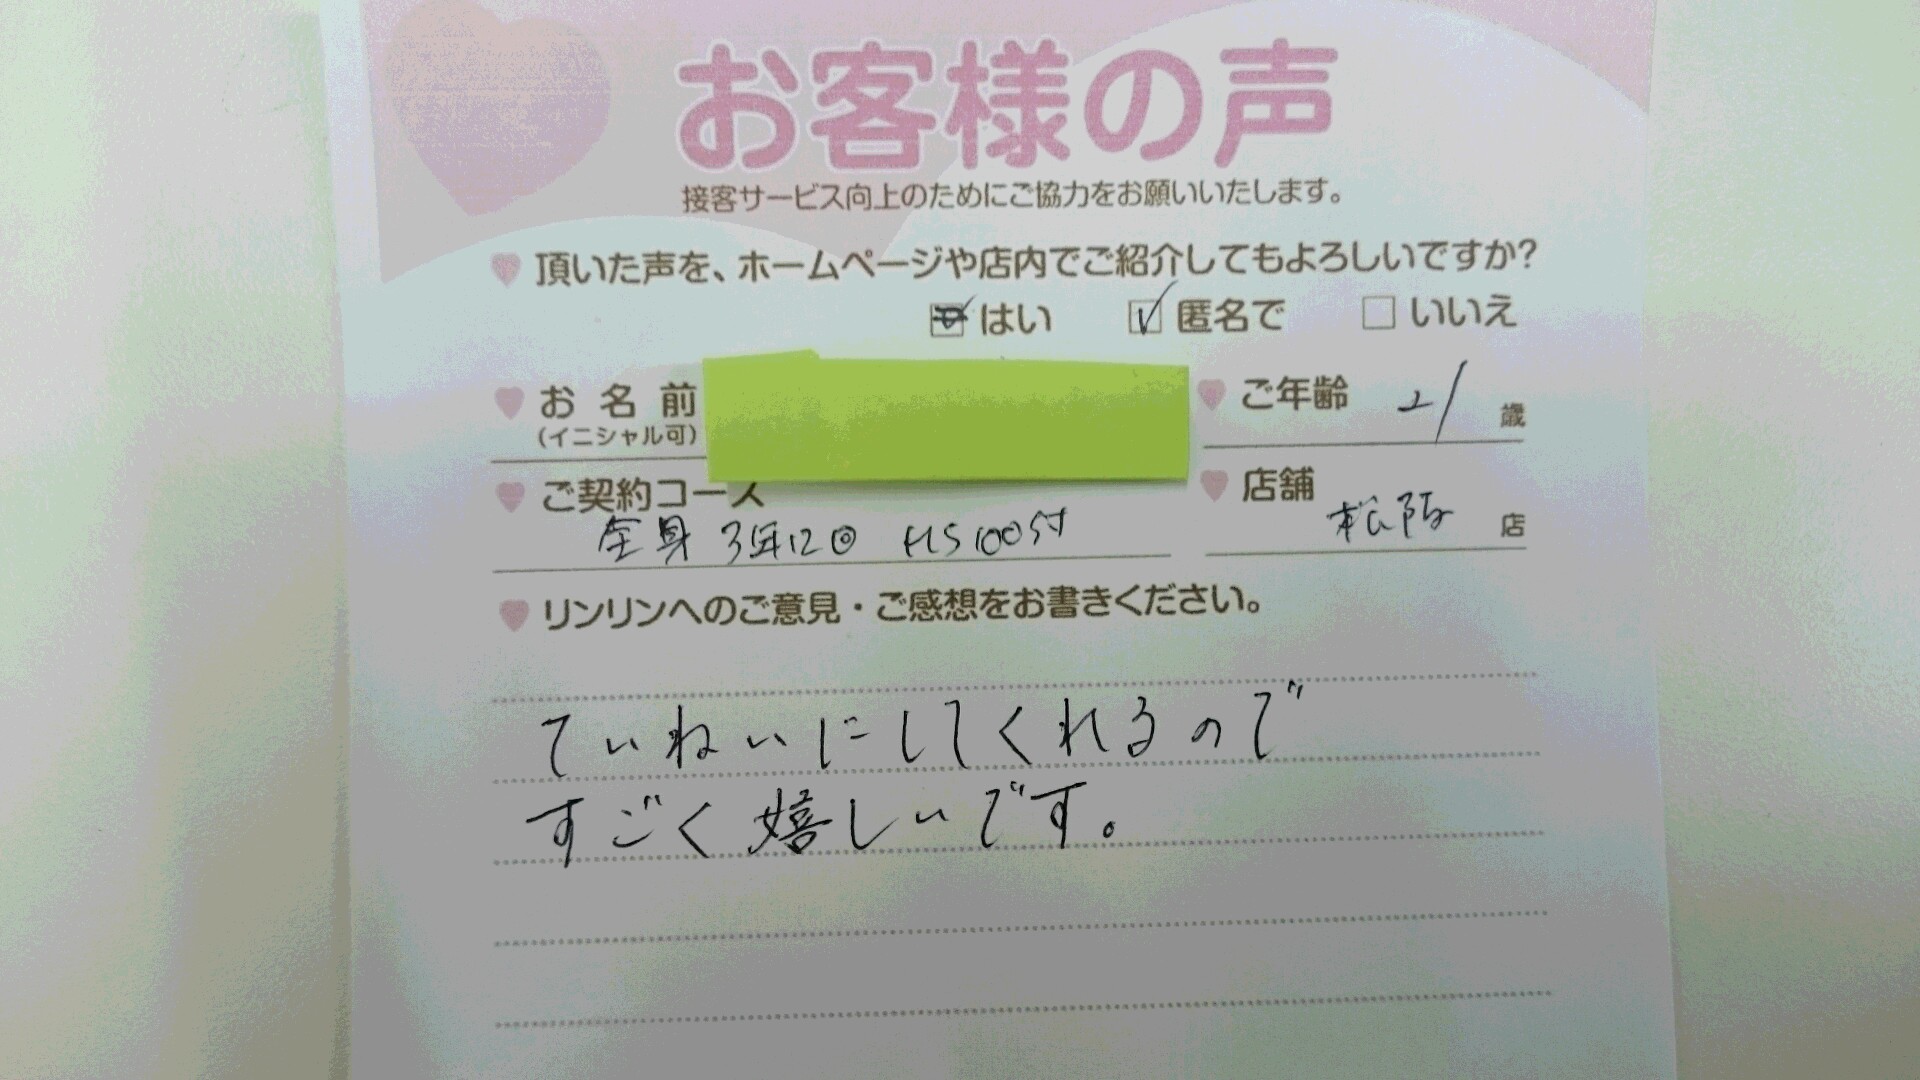 お客様の声
接客サービス向上のためにご協力をお願いいたします。
頂いた声を、ホームページや店内でご紹介してもよろしいですか?
はい 匿名で いいえ
お名前 ご年齢 21 歳
(イニシャル可)
ご契約コース 店舗
全身 3年12回 HS100S付 松阪 店
リンリンへのご意見・ご感想をお書きください。
ていねいにしてくれるので
すごく嬉しいです。